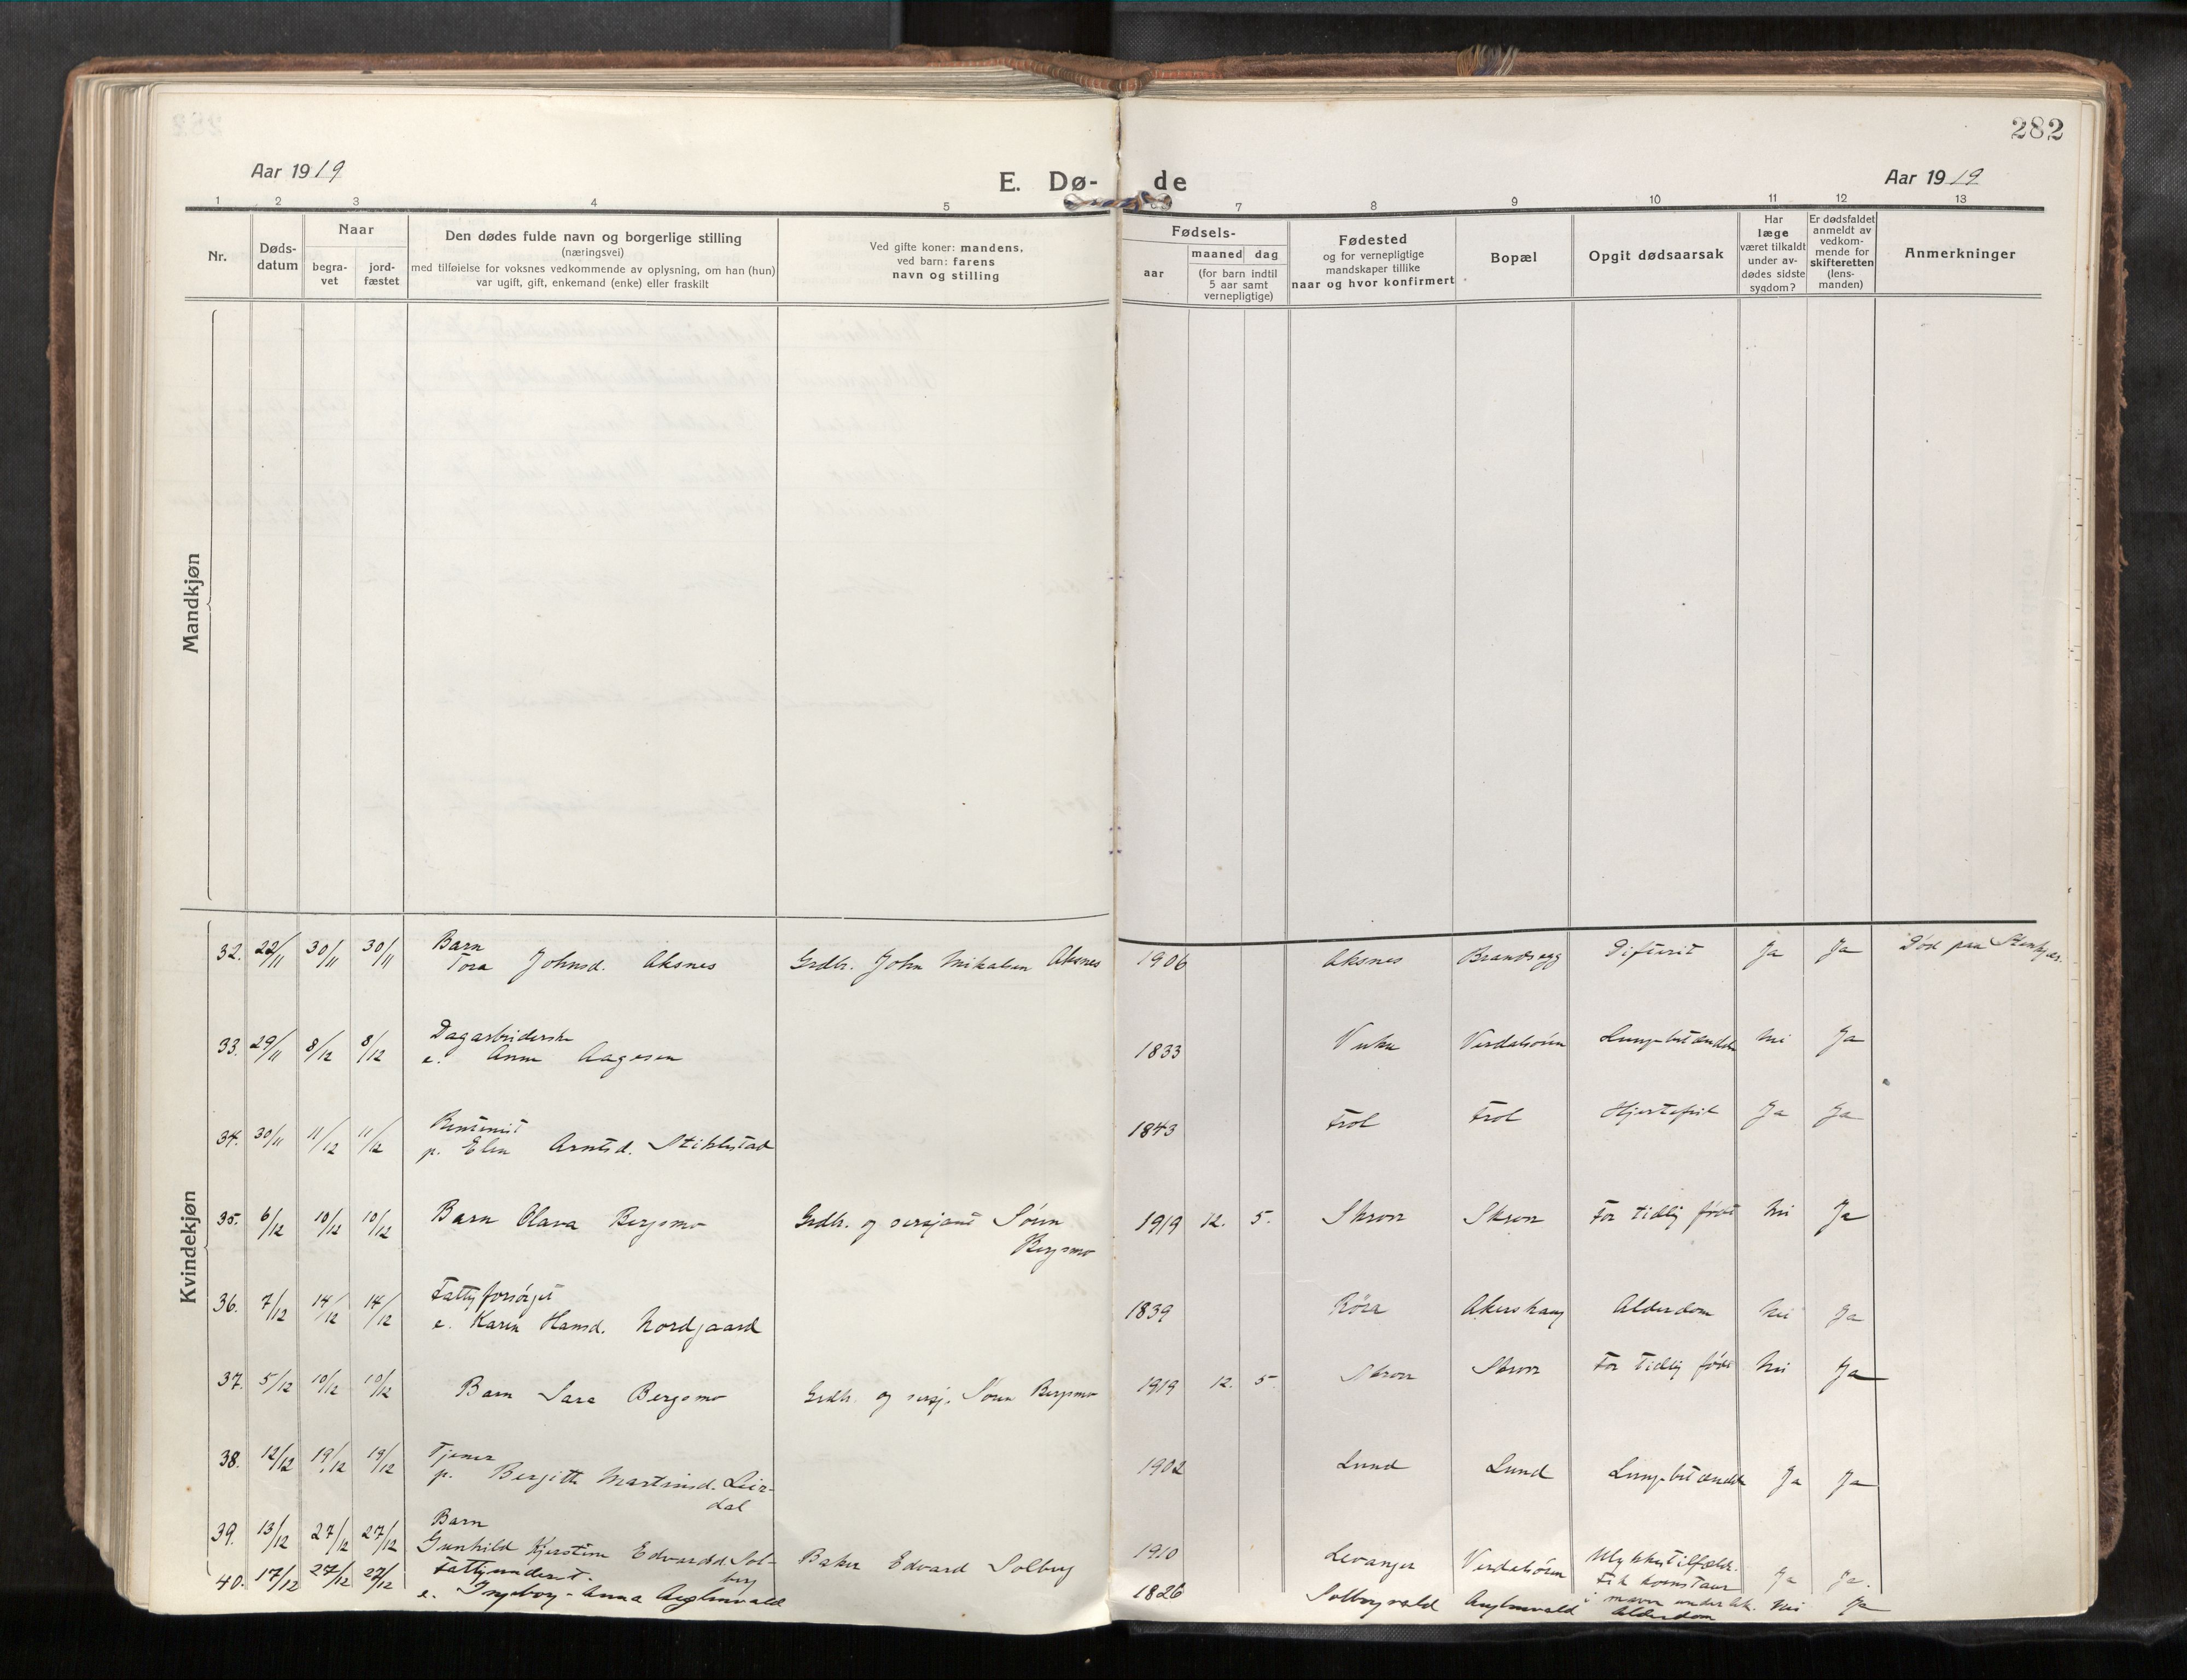 282
Aar 1919
E. Dø- de
Aar 1919
1 2 3 4 5 6 7 8 9 10 11 12 13
Nr.
Døds-
datum
Naar
begra-
vet
jord-
fæstet
Den dødes fulde navn og borgerlige stilling
(næringsvei)
med tilføielse for voksnes vedkommende av oplysning, om han (hun)
var ugift, gift, enkemand (enke) eller fraskilt
Ved gifte koner: mandens,
ved barn: farens
navn og stilling
Fødsels-
aar
maaned dag
(for barn indtil
5 aar samt
vernepligtige)
Fødested
og for vernepligtige
mandskaper tillike
naar og hvor konfirmert
Bopæl
Opgit dødsaarsak
Har
læge
været tilkaldt
under av-
dødes sidste
sygdom?
Er dødsfaldet
anmeldt av
vedkom-
mende for
skifteretten
(lens-
manden)
Anmerkninger
Mandkjøn
Kvindekjøn
32. 22/11 30/11 30/11 Barn
Tora Johnsd. Aksnes Grdbr. John Mikalsen Aksnes 1906 Aksnes Brandsegg Difterit Ja Ja Død paa Stenkjær.
33. 29/11 8/12 8/12 Dagarbeiderske
e. Anne Aagesen 1833 Vuku Verdalsøren Lungebetændelse Nei Ja
34. 30/11 11/12 11/12
p. Elen Arntsd. Stiklestad 1843 Frol Frol Hjertefeil Ja Ja
35. 6/12 10/12 10/12 Barn Olava Bergsmo Grdbr. og sersjant Søren
Bergsmo 1919 12. 5. Skrove Skrove For tidlig født Nei Ja
36. 7/12 14/12 14/12 Fattigforsørget
e. Karen Hansd. Nordgaard 1839 Røra Akershaug Alderdom Nei Ja
37. 5/12 10/12 10/12 Barn Sara Bergsmo Grdbr. og sersj. Søren Bergsmo 1919 12. 5 Skrove Skrove For tidlig født Nei Ja
38. 12/12 19/12 19/12 Tjener
p. Bergitte Martinsd. Leir-
dal 1902 Lund Lund Lungebetændelse Ja Ja
39. 13/12 27/12 27/12 Barn
Gunhild Kjerstine Edvardsd. Sol-
berg Baker Edvard Solberg 1910 Levanger Verdalsøren Ulykkestilfælde.
Fik
i maven Ja Ja.
40. 17/12 27/12 27/12 Fattigunderst.
e. Ingeborg-Anna 1826 Alderdom Nei Ja